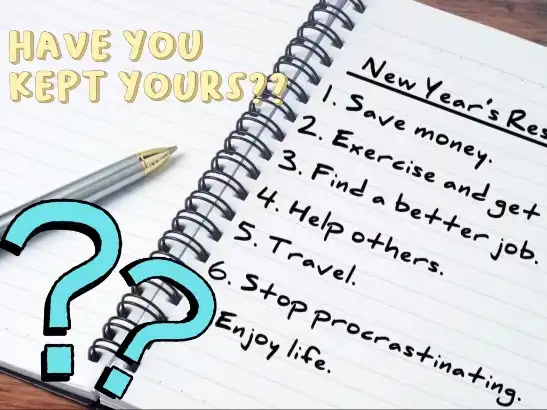 HAVE YOU
KEPT YOURS??
New Year's Res
1. Save money.
2. Exercise and get
3. Find a better job.
4. Help others.
5. Travel.
6. Stop procrastinating.
Enjoy life.
??